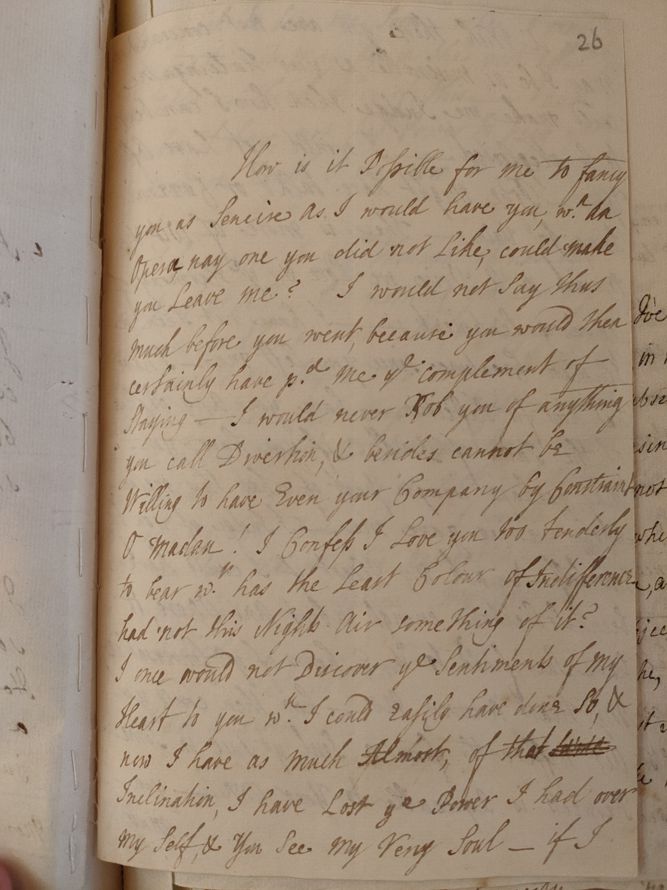 26
How is it Possible for me to fancy
you as Senceire As I would have you, wn. an
Opera nay one you did not Like, could make
you Leave me? I would not Say thus
much before you went, because you would then
certainly have p.d me ye complement of
Staying — I would never Rob you of anything
you call Divertion, & besides cannot be
Willing to have Even your Company by Constraint
O Madam! I Confess I Love you too tenderly
to bear wt. has the Least Colour of Indifference,
had not this Nights Air something of it?
I once would not Discover ye Sentiments of my
Heart to you wn. I could easily have done So, &
now I have as much Almost, of that
Inclination, I have Lost ye Power I had over
my Self, & You See my Very Soul — if I